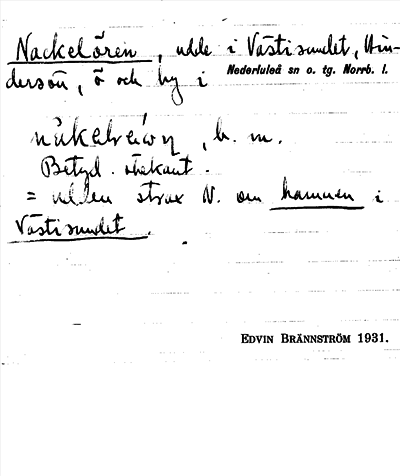 Nackelören, udde i Västisundet, Hin-
dersön, ö och by i Nederluleå sn o. tg. Norrb. l.
b. m.
Betyd. obekant.
= udden strax N. om hamnen i
Västisundet.
EDVIN BRÄNNSTRÖM 1931.